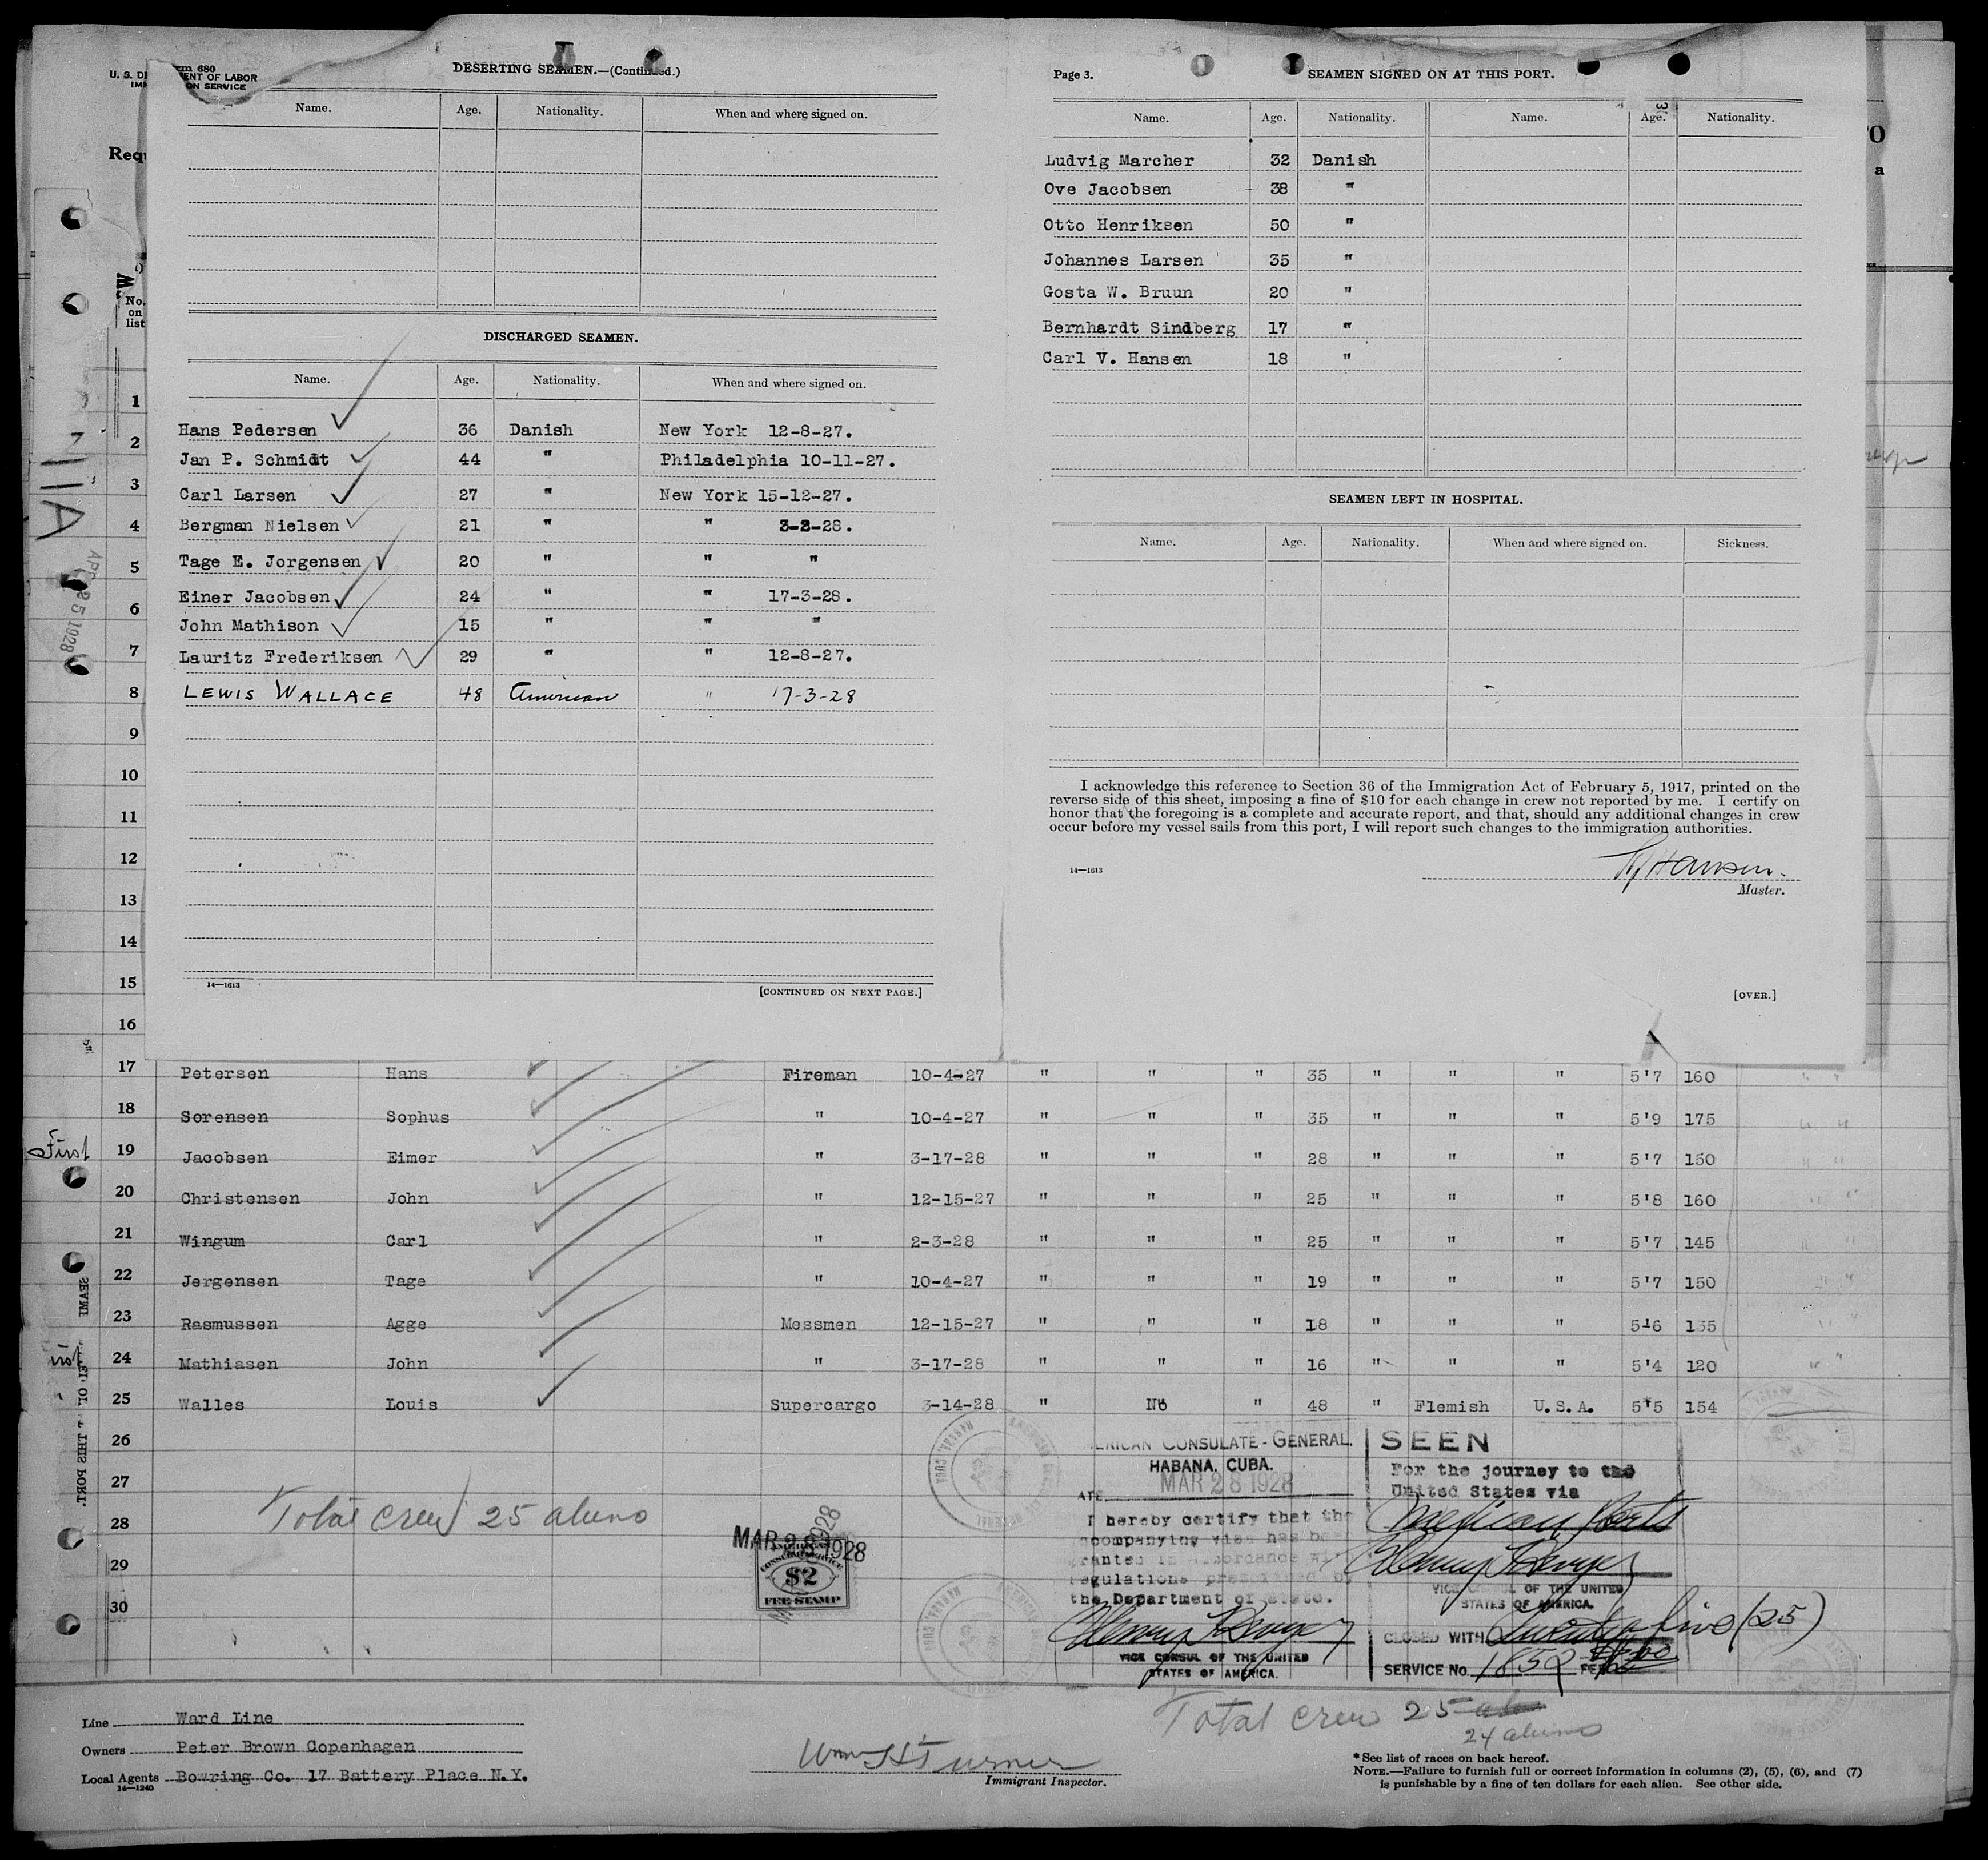 DESERTING SEAMEN.—(Continued.)
U. S. DE
rm 680
ENT OF LABOR
ON SERVICE
Name. Age. Nationality. When and where signed on.
DISCHARGED SEAMEN.
Name. Age. Nationality. When and where signed on.
Hans Pedersen 36 Danish New York 12-8-27.
Jan P. Schmidt 44 " Philadelphia 10-11-27.
Carl Larsen 27 " New York 15-12-27.
Bergman Nielsen 21 " " 3-2-28.
Tage E. Jorgensen 20 " " "
Einer Jacobsen 24 " " 17-3-28.
John Mathison 15 " " "
Lauritz Frederiksen 29 " " 12-8-27.
LEWIS WALLACE 48 American " 17-3-28
14—1613 [CONTINUED ON NEXT PAGE.]
Page 3. SEAMEN SIGNED ON AT THIS PORT.
Name. Age. Nationality. Name. Age. Nationality.
Ludvig Marcher 32 Danish
Ove Jacobsen 38 "
Otto Henriksen 50 "
Johannes Larsen 35 "
Gosta W. Bruun 20 "
Bernhardt Sindberg 17 "
Carl V. Hansen 18 "
SEAMEN LEFT IN HOSPITAL.
Name. Age. Nationality. When and where signed on. Sickness.
I acknowledge this reference to Section 36 of the Immigration Act of February 5, 1917, printed on the
reverse side of this sheet, imposing a fine of $10 for each change in crew not reported by me. I certify on
honor that the foregoing is a complete and accurate report, and that, should any additional changes in crew
occur before my vessel sails from this port, I will report such changes to the immigration authorities.
Hansen.
14—1613 Master.
[OVER.]
Requ
No.
on
list
1
2
3
4
5
6
7
8
9
10
11
12
13
14
15
16
APR 25 1928
17 Petersen Hans Fireman 10-4-27 " " " 35 " " " 5'7 160
18 Sorensen Sophus " 10-4-27 " " " 35 " " " 5'9 175
First
19 Jacobsen Eimer " 3-17-28 " " " 28 " " " 5'7 150
20 Christensen John " 12-15-27 " " " 25 " " " 5'8 160
21 Wingum Carl " 2-3-28 " " " 25 " " " 5'7 145
22 Jergensen Tage " 10-4-27 " " " 19 " " " 5'7 150
23 Rasmussen Agge Messmen 12-15-27 " " " 18 " " " 5'6 135
24 Mathiasen John " 3-17-28 " " " 16 " " " 5'4 120
25 Walles Louis Supercargo 3-14-28 " No " 48 " Flemish U.S.A. 5'5 154
26
27
28
29
30
THIS PORT.
Total crew 25 aliens
MAR 28 1928
$2
FEE STAMP
ERICAN CONSULATE-GENERAL.
HABANA, CUBA.
MAR 28 1928
ATE
I hereby certify that the
ccompanying visa has been
ranted in accordance wi
regulations prescribed by
the Department of State.
VICE CONSUL OF THE UNITED
STATES OF AMERICA.
SEEN
For the journey to the
United States via
Mexican Ports
VICE CONSUL OF THE UNITED
STATES OF AMERICA.
CLOSED WITH Twenty five (25)
SERVICE No. 1852 FEE
Total crew 25
24 aliens
Line Ward Line
Owners Peter Brown Copenhagen
Local Agents Bowring Co. 17 Battery Place N.Y.
14—1240
Wm H Turner
Immigrant Inspector.
*See list of races on back hereof.
NOTE.—Failure to furnish full or correct information in columns (2), (5), (6), and (7)
is punishable by a fine of ten dollars for each alien. See other side.